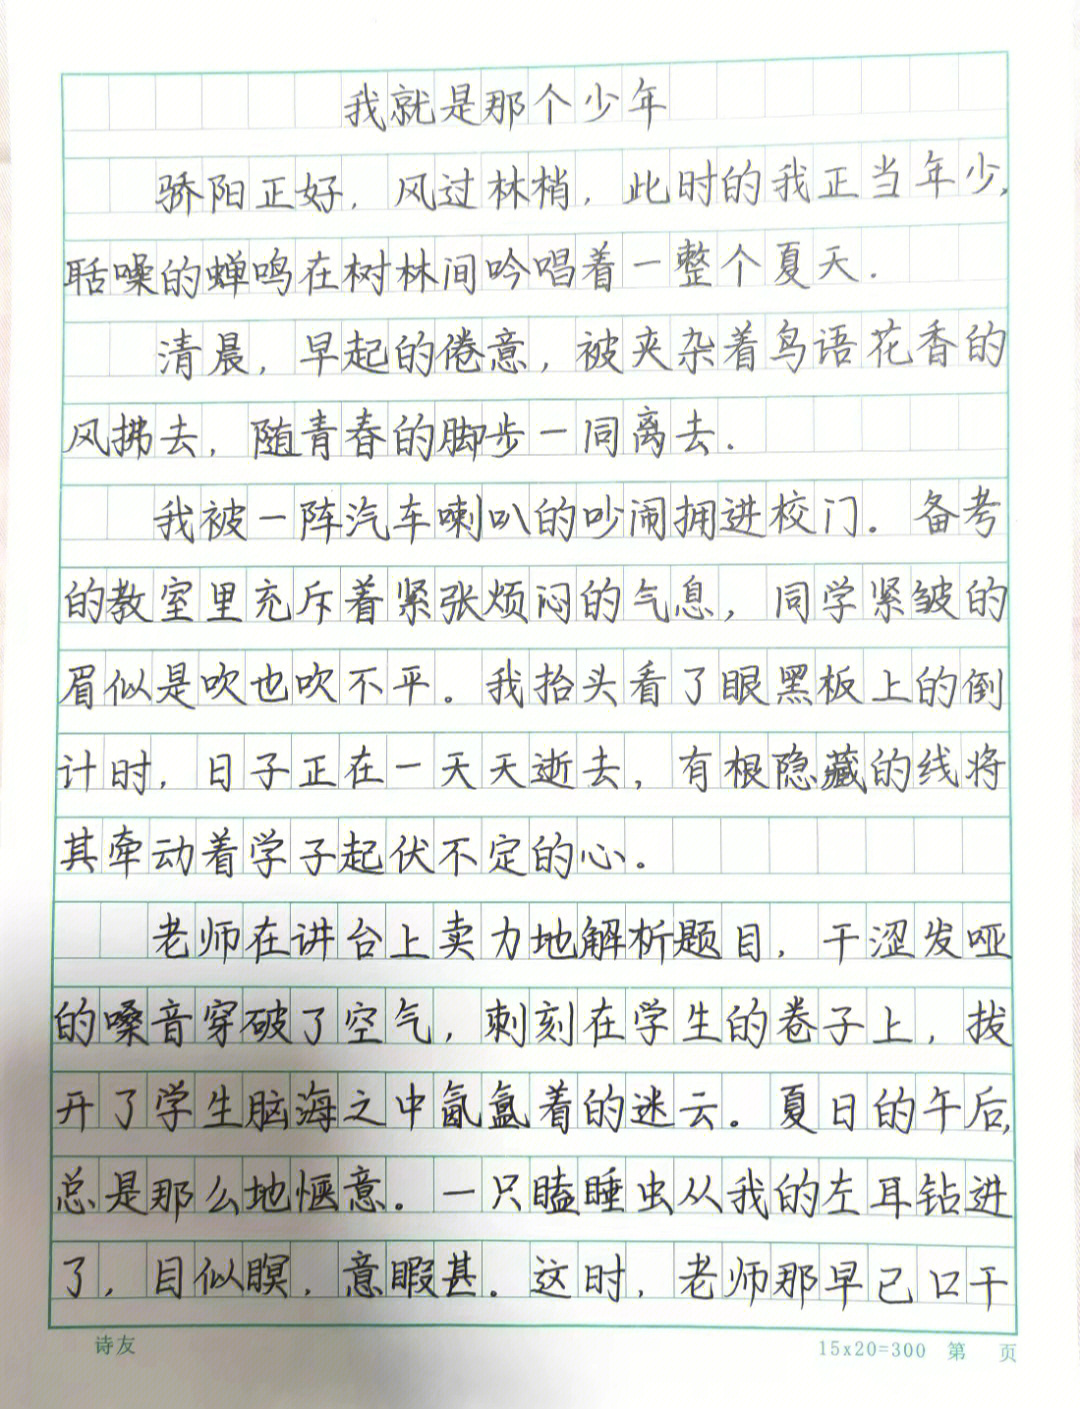 我就是那个少年
骄阳正好，风过林梢，此时的我正当年少，
聒噪的蝉鸣在树林间吟唱着一整个夏天.
清晨，早起的倦意，被夹杂着鸟语花香的
风拂去，随青春的脚步一同离去.
我被一阵汽车喇叭的吵闹拥进校门。备考
的教室里充斥着紧张烦闷的气息，同学紧皱的
眉似是吹也吹不平。我抬头看了眼黑板上的倒
计时，日子正在一天天逝去，有根隐藏的线将
其牵动着学子起伏不定的心。
老师在讲台上卖力地解析题目，干涩发哑
的嗓音穿破了空气，刺刻在学生的卷子上，拨
开了学生脑海之中氤氲着的迷云。夏日的午后，
总是那么地惬意。一只瞌睡虫从我的左耳钻进
了，目似瞑，意暇甚.这时，老师那早已口干
诗友
15x20=300 第 页